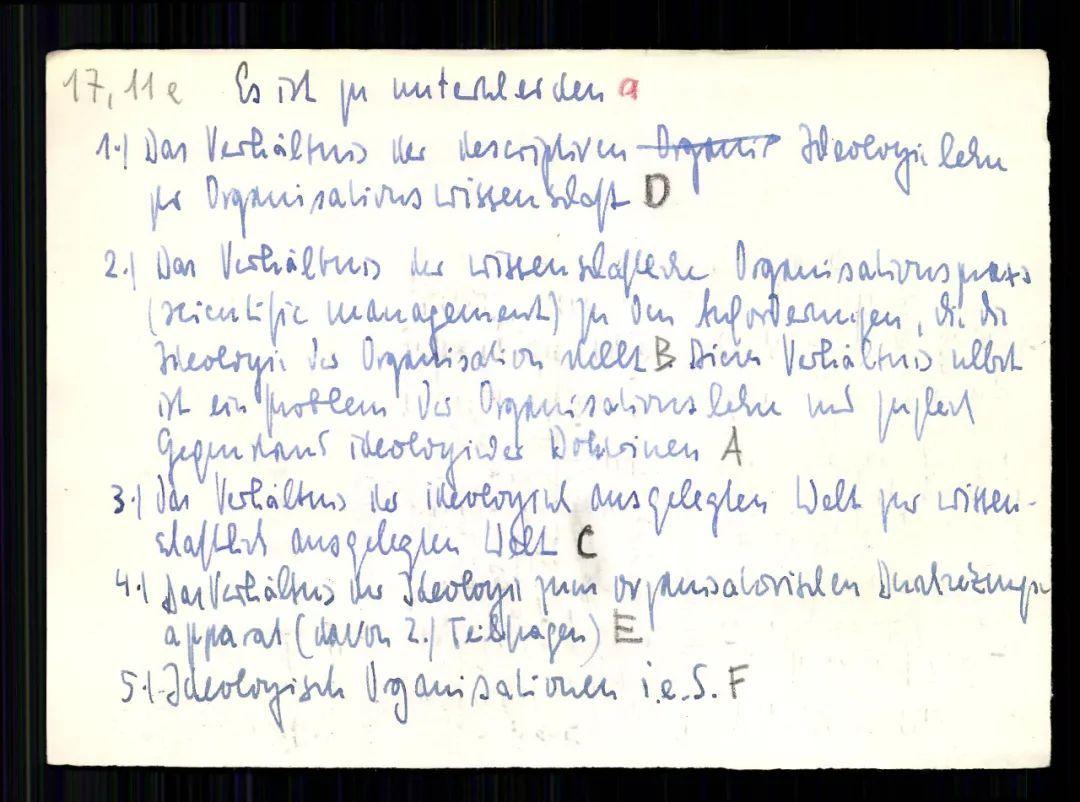 17,11e Es ist zu unterscheiden a
1.) Das Verhältnis der descriptiven Organis Ideologielehre
zur Organisationswissenschaft D
2.) Das Verhältnis der wissenschaftlichen Organisationspraxis
(scientific management) zu den Anforderungen, die die
Ideologie der Organisation stellt B Dieses Verhältnis selbst
ist ein Problem der Organisationslehre und zugleich
Gegenstand ideologischer Doktrinen A
3.) Das Verhältnis der ideologisch ausgelegten Welt zur wissen-
schaftlich ausgelegten Welt C
4.) Das Verhältnis der Ideologie zum organisatorischen Durchsetzungs
apparat (davon 2.) Teilfragen) E
5.) Ideologische Organisationen i.e.S. F